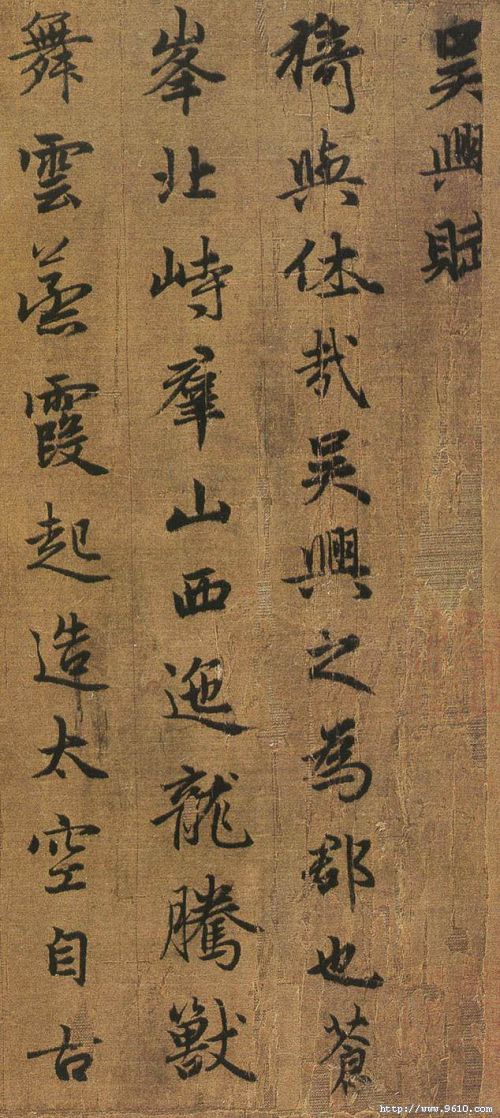 吴興賦
猗與休哉吴興之為郡也蒼
峯北峙羣山西迤龍騰獸
舞雲蒸霞起造太空自古
http://www.9610.com